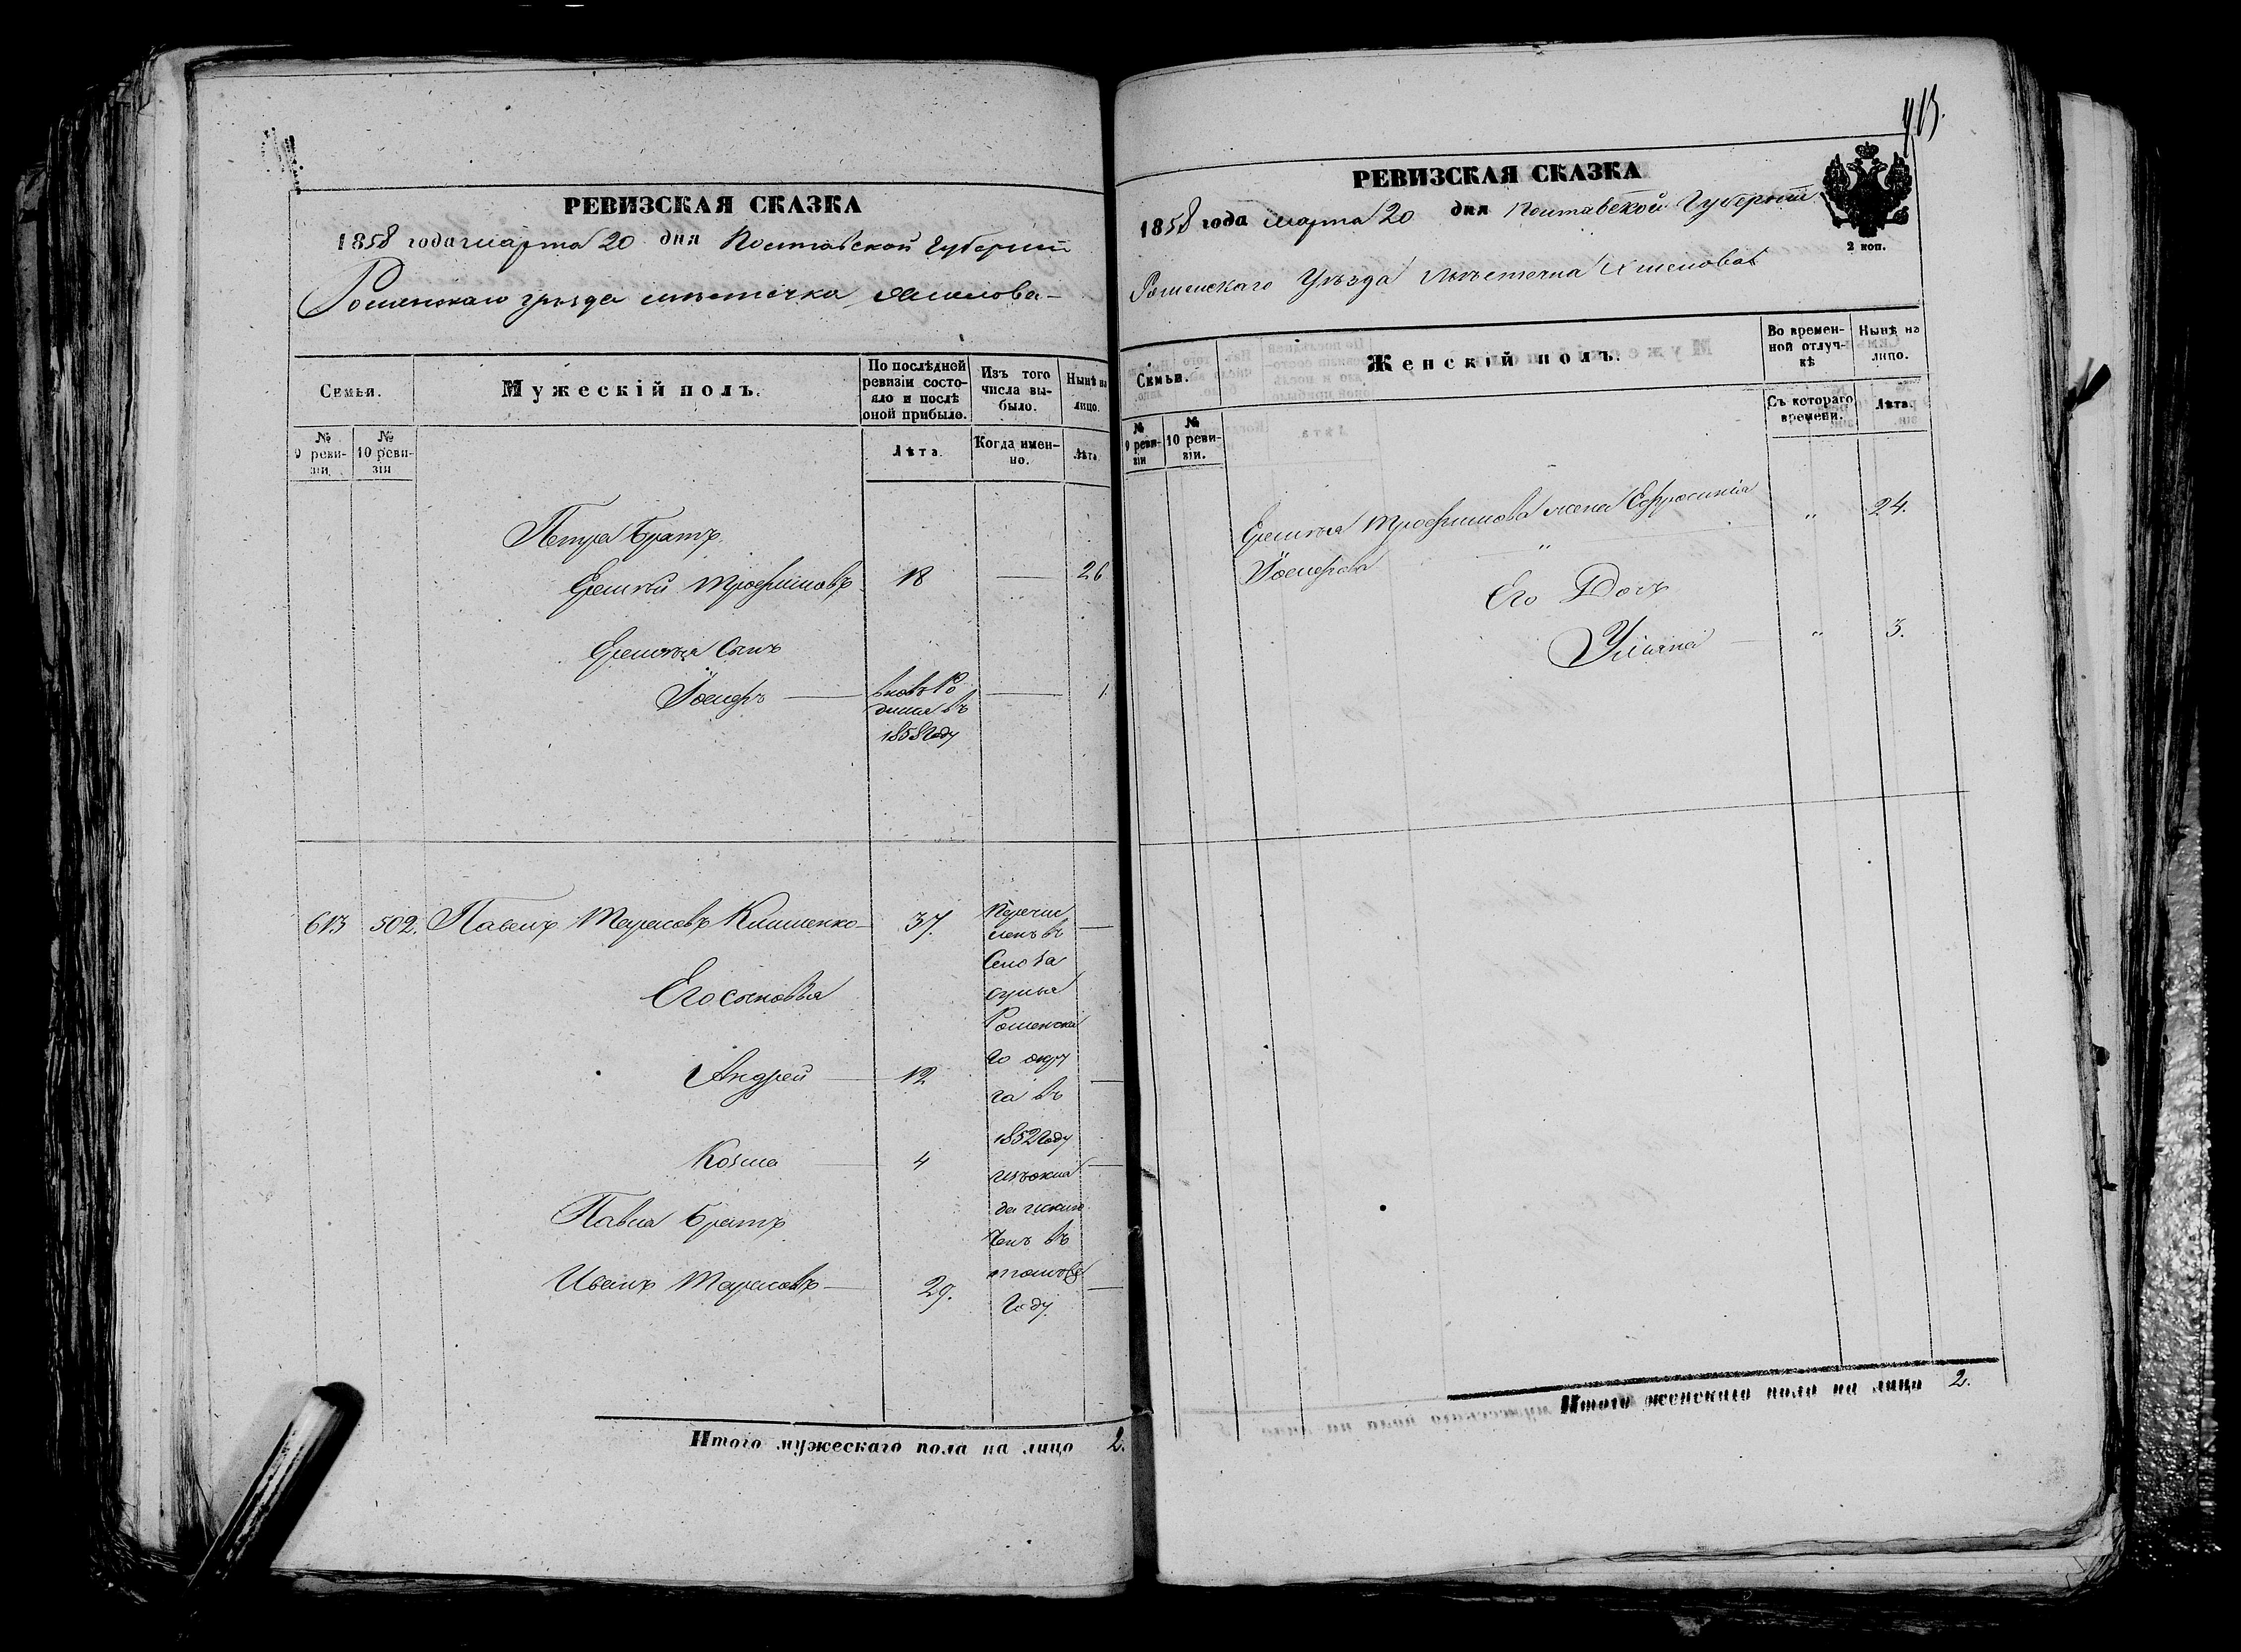 РЕВИЗСКАЯ СКАЗКА
1858 года марта 20 дня Полтавской Губерніи
Роменскаго уѣзда мѣстечка
Семьи.
Мужескій полъ.
По послѣдней ревизіи состо-
яло и послѣ
оной прибыло.
Изъ того
числа вы-
было.
Нынѣ на
лицо.
№
9 реви-
зіи.
№
10 реви-
зіи
Лѣта.
Когда имен-
но.
Лѣта.
Петра братъ
Еремѣй Трофимовъ 18 — 26
Еремѣя сынъ
вновь ро
дился въ
1858 году
— 1
613 502. Павелъ Тарасовъ Клименко 37.
Перечис
ленъ въ
Село
Роменска
го окру
га въ
1852 году
Его сыновья
Андрей — 12 —
Козма — 4 —
Павла братъ
Иванъ Тарасовъ — 29. —
году.
Итого мужескаго пола на лицо 2.
РЕВИЗСКАЯ СКАЗКА
1858 года марта 20 дня Полтавской Губерніи
2 коп.
Роменскаго Уѣзда Мѣстечка
Семьи.
Женскій полъ.
Во времен-
ной отлуч-
кѣ
Нынѣ на
лицо.
№
9 реви-
зіи
№
10 реви-
зіи.
Съ котораго
времени.
Лѣта.
Еремѣя Трофимова жена Ефросинія „ 24.
Его Дочь
Уліяна — „ 3.
Итого женскаго пола на лицо 2.